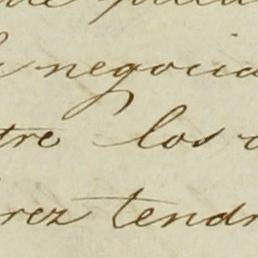 negocia
tre los
rez tendr